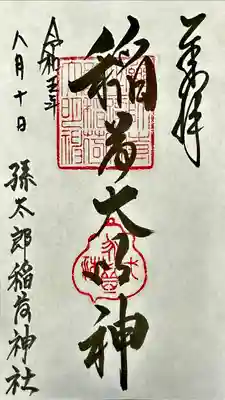 奉拝
稲荷大明神
令和五年
八月十日
孫太郎稲荷神社